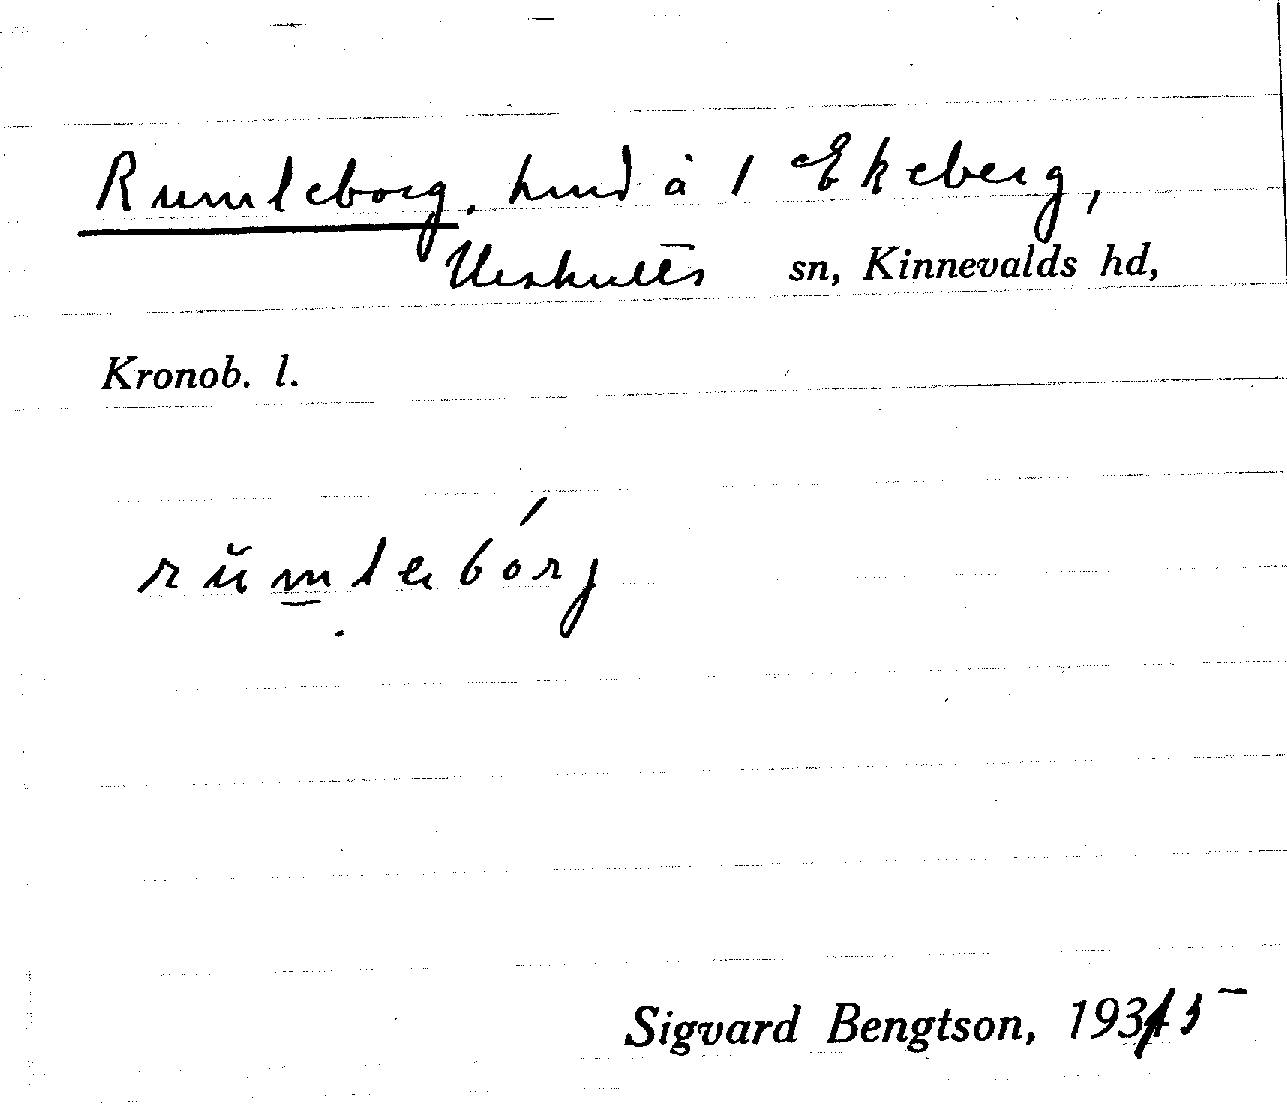 Rumleborg. lund å 1 Ekeberg,
Urshults sn, Kinnevalds hd,
Kronob. l.
rŭmlebórg
Sigvard Bengtson, 1935